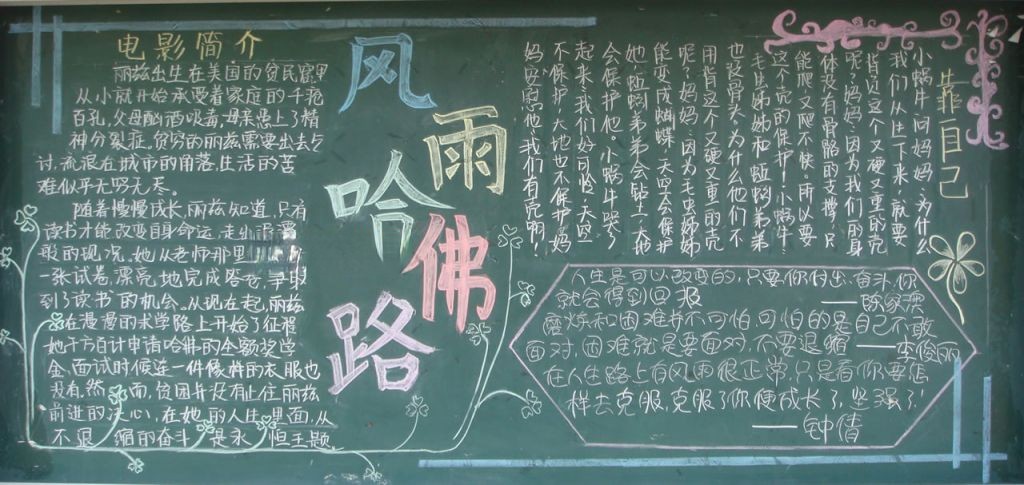 电影简介
丽兹出生在美国的贫民窟里
从小就开始承受着家庭的千疮
百孔，父母酗酒吸毒，母亲患上了精
神分裂症。贫穷的丽兹需要出去乞
讨，流浪在城市的角落，生活的苦
难似乎无穷无尽。
随着慢慢成长，丽兹知道，只有
读书才能改变自身命运，走出
般的现况。她从老师那里
一张试卷，漂亮地完成答卷，争取
到了读书的机会。从现在起，丽兹
在漫漫的求学路上开始了征程
她千方百计申请哈佛的全额奖学
金，面试时候连一件像样的衣服也
没有，然而，贫困并没有止住丽兹
前进的决心，在她的人生里面，从
不退缩的奋斗是永恒主题
风雨哈佛路
靠自己
小蜗牛问妈妈：为什么
我们从生下来，就要
背负这个又硬又重的壳
呢？妈妈：因为我们的身
体没有骨骼的支撑，只
能爬，又爬不快。所以要
这个壳的保护！小蜗牛：
毛虫姊姊和蚯蚓弟弟
也没骨头，为什么他们不
用背这个又硬又重的壳
呢？妈妈：因为毛虫姊姊
能变成蝴蝶，天空会保护
她，蚯蚓弟弟会钻土，大地
会保护他。小蜗牛哭了
起来：我们好可怜，天空
不保护，大地也不保护。妈
妈安慰他：我们有壳啊！
人生是可以改变的，只要你付出，奋斗，你
就会得到回报
磨炼和困难并不可怕，可怕的是自己不敢
面对，困难就是要面对，不要退缩——李俊丽
在人生路上有风雨很正常，只是看你要怎
样去克服，克服了你便成长了，坚强了！
——钟倩